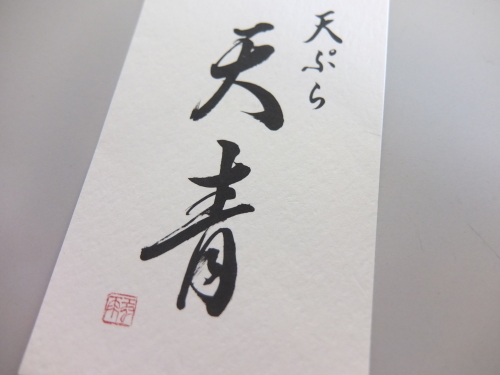 天ぷら
天青